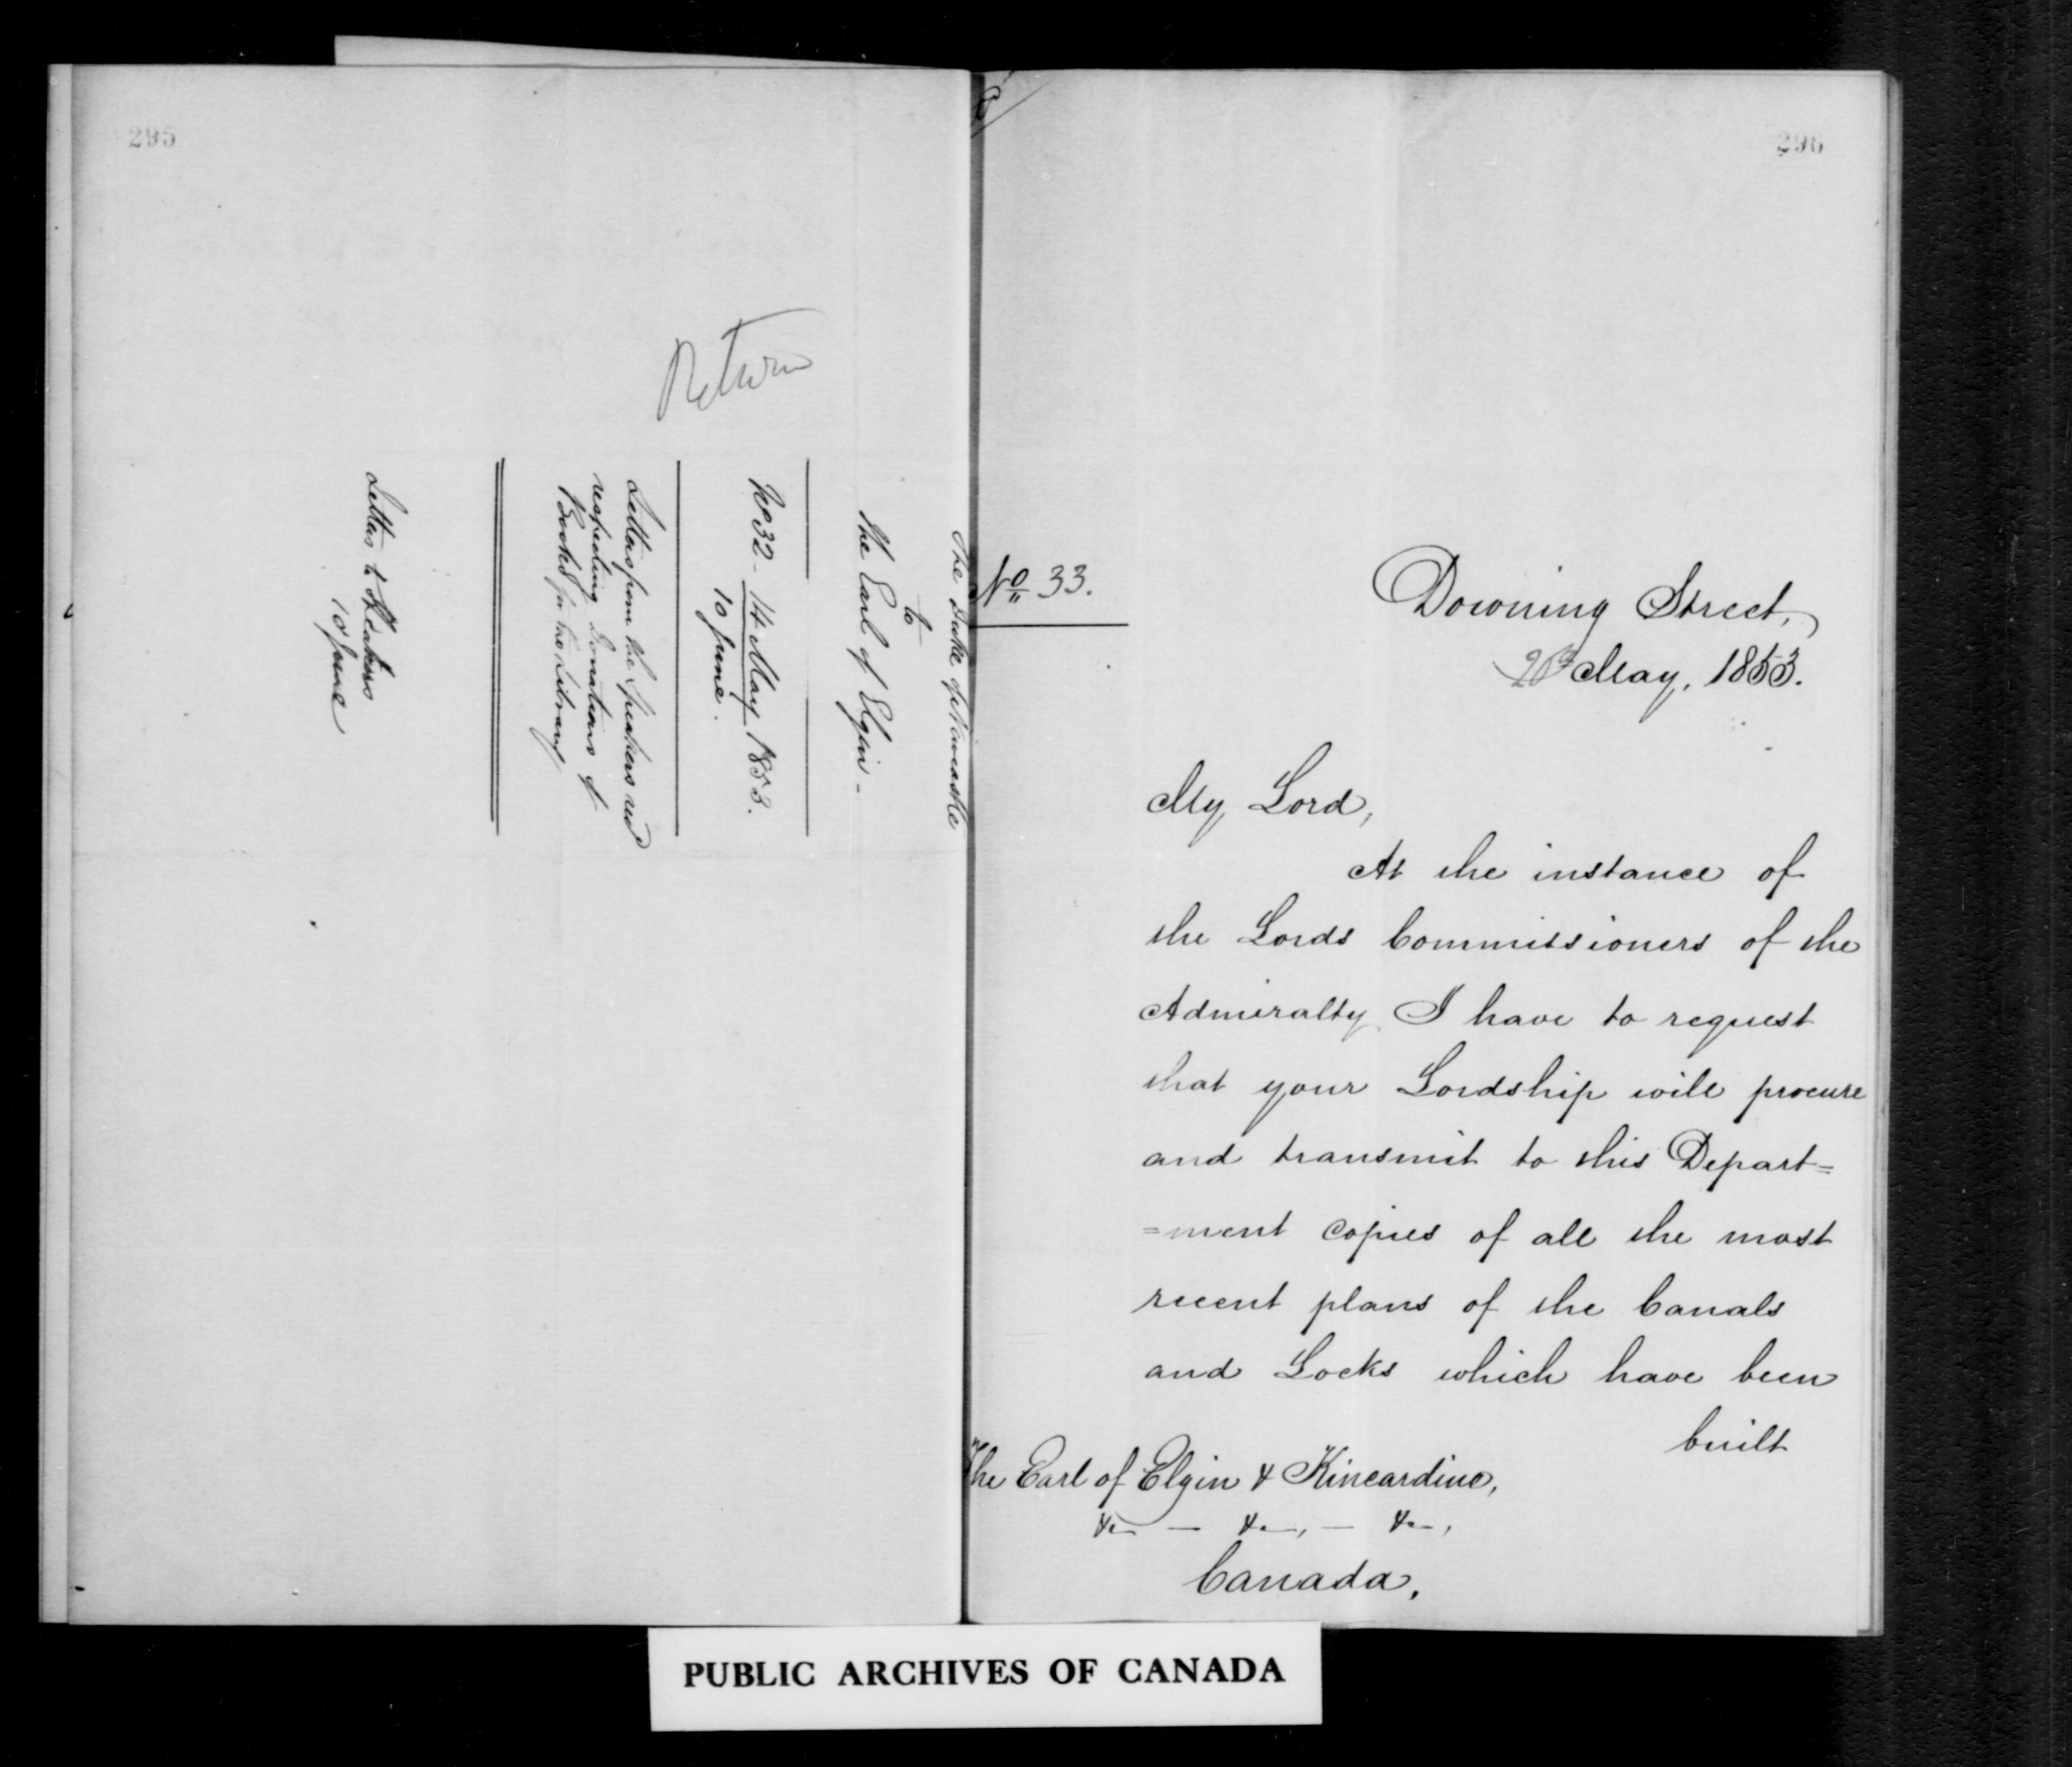 295
Return
The Duke of Newcastle
to
The Earl of Elgin -
No 32 - 14 May 1853.
10 June.
Letters from the Speakers recd
respecting Donations of
Books for the Library
Letters to Speakers
10 June
296
No 33.
Downing Street,
May, 1853.
My Lord,
At the instance of
the Lords Commissioners of the
Admiralty I have to request
that your Lordship will procure
and transmit to this Depart=
=ment copies of all the most
recent plans of the Canals
and Locks which have been
built
The Earl of Elgin & Kincardine,
&c — &c, — &c,
Canada,
PUBLIC ARCHIVES OF CANADA